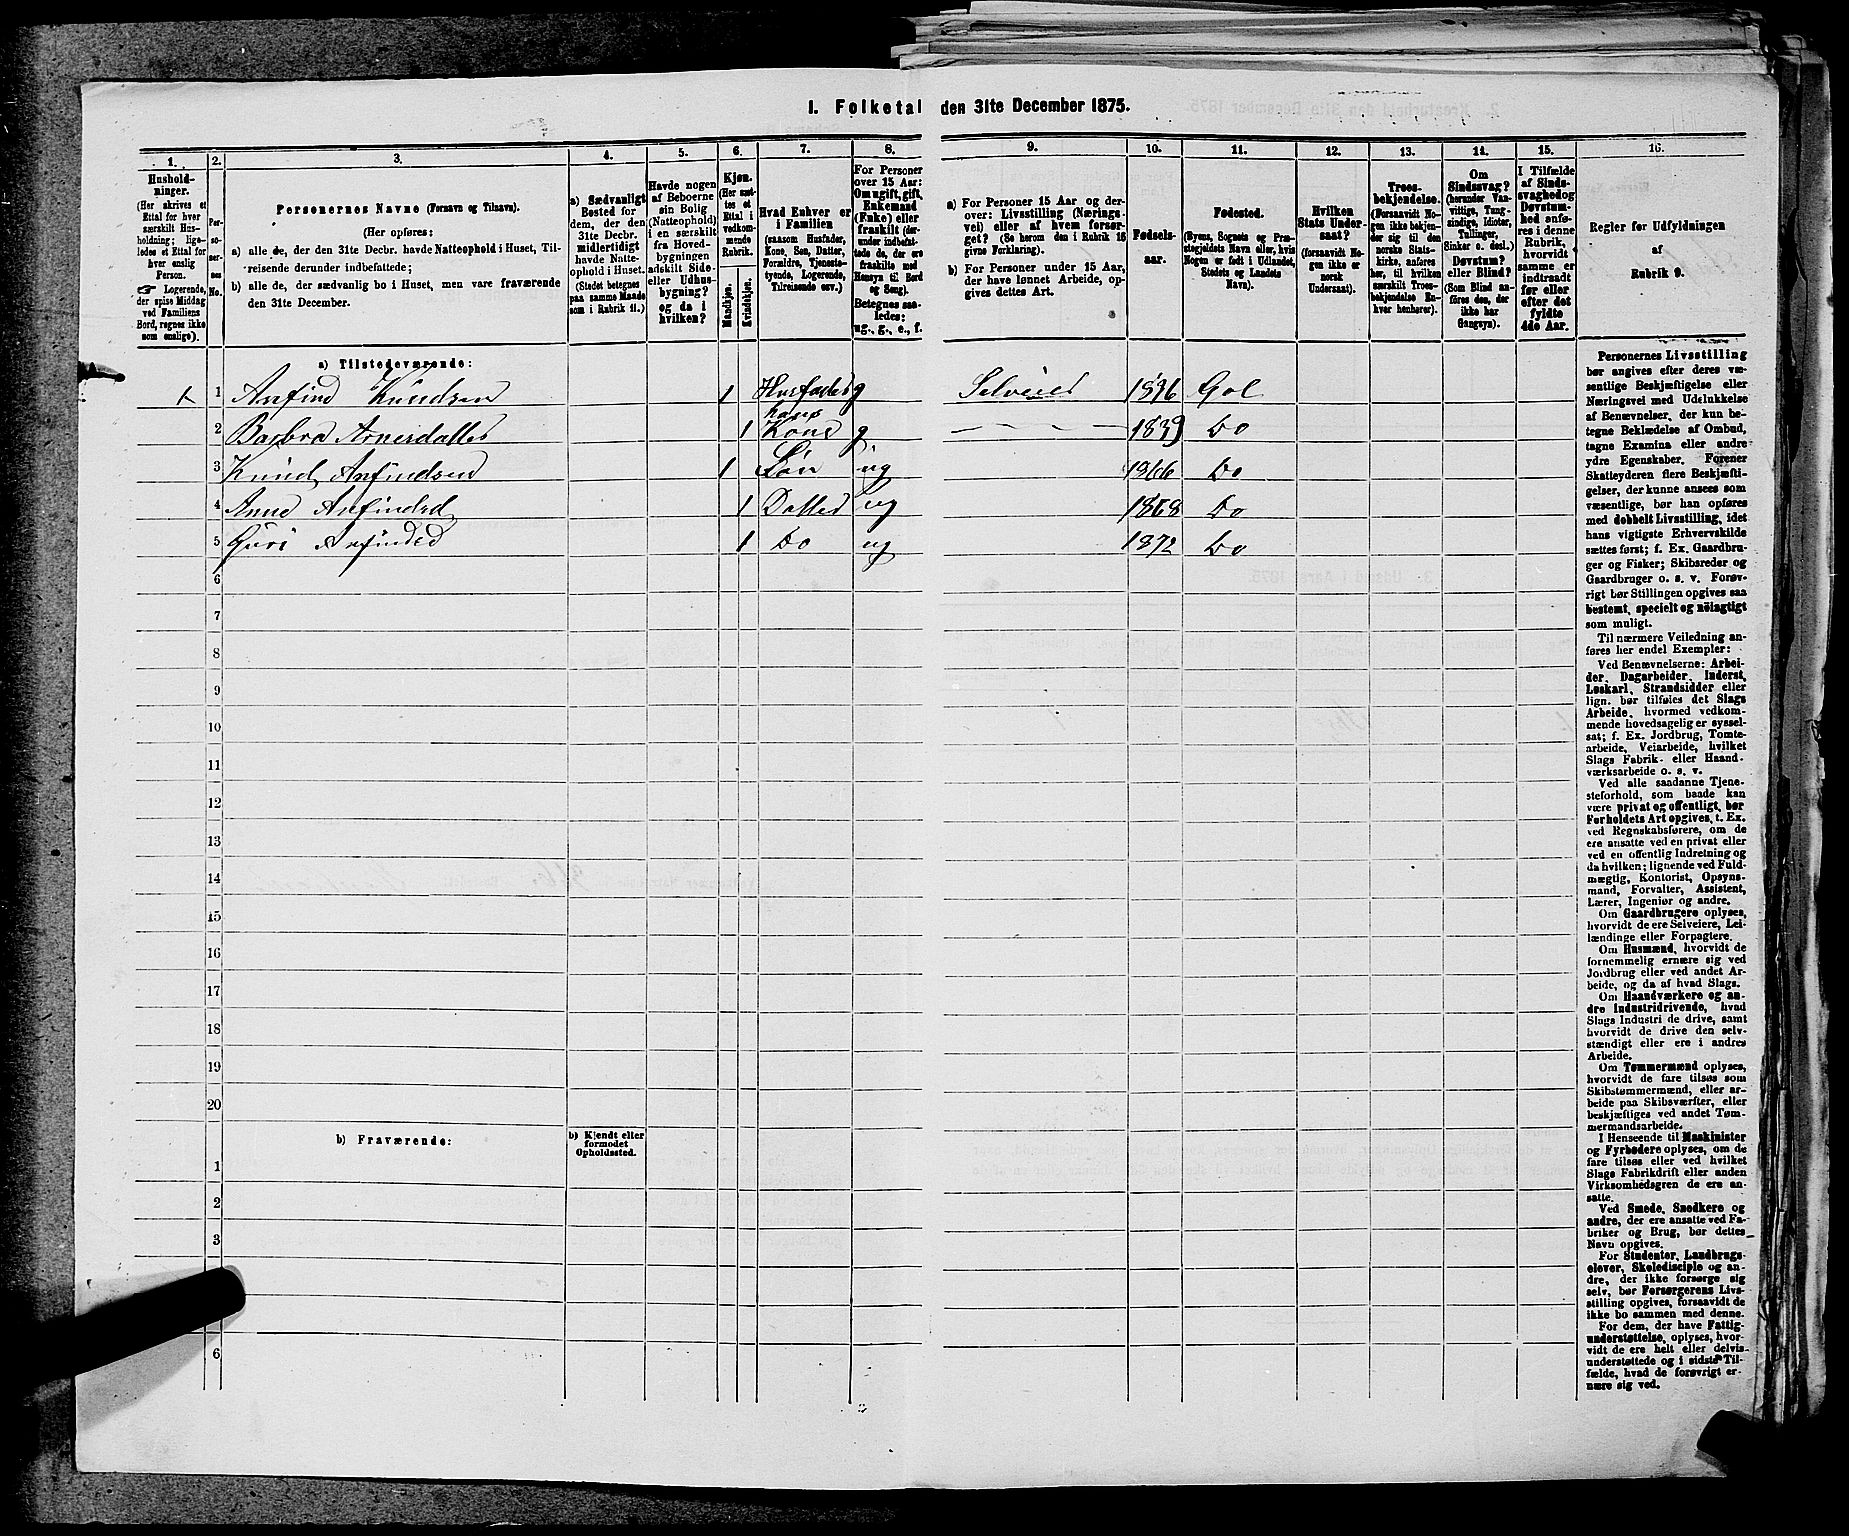 1. Folketal den 31te December 1875.
1. 2. 3. 4. 5. 6. 7. 8. 9. 10. 11. 12. 13. 14. 15. 16.
Hushold-
ninger.
(Her skrives et
Ettal for hver
særskilt Hus-
holdning; lige-
ledes et Ettal for
hver enslig
Person.
☞ Logerende,
der spise Middag
ved Familiens
Bord, regnes ikke
som enslige).
Per-
so-
ner-
nes
No.
Personernes Navne (Fornavn og Tilnavn).
(Her opføres:
a) alle de, der den 31te Decbr. havde Natteophold i Huset, Til-
reisende derunder indbefattede;
b) alle de, der sædvanlig bo i Huset, men vare fraværende
den 31te December.
a) Sædvanligt
Bosted for
dem, der den
31te Decbr.
midlertidigt
havde Natte-
ophold i Huset.
(Stedet betegnes
paa samme Maade
som i Rubrik 11.)
Havde nogen
af Beboerne
sin Bolig
(Natteophold)
i en særskilt
fra Hoved-
bygningen
adskilt Side-
eller Udhus-
bygning?
og da i
hvilken?
Kjøn.
(Her sæt-
tes et
Ettal i
vedkom-
mende
Rubrik.
Mandkjøn.
Kvindekjøn.
Hvad Enhver er
i Familien
(saasom Husfader,
Kone, Søn, Datter,
Forældre, Tjeneste-
tyende, Logerende,
Tilreisende osv.)
For Personer
over 15 Aar:
Om ugift, gift,
Enkemand
(Enke) eller
fraskilt (der-
under indbefat-
tede de, der ere
fraskilte med
Hensyn til Bord
og Seng).
Betegnes saa-
ledes:
ug., g., e., f.
a) For Personer 15 Aar og der-
over: Livsstilling (Nærings-
vei) eller af hvem forsør-
get? (Se herom den i Rubrik 16
givne Forklaring).
b) For Personer under 15 Aar,
der have lønnet Arbeide, op-
gives dettes Art.
Fødsels-
aar.
Fødested.
(Byens, Sognets og Præ-
stegjeldets Navn eller, hvis
Nogen er født i Udlandet,
Stedets og Landets
Navn).
Hvilken
Stats Under-
saat?
(forsaavidt No-
gen ikke er
norsk
Undersaat).
Troes-
bekjendelse.
(Forsaavidt No-
gen ikke bekjen-
der sig til den
norske Stats-
kirke, anføres
her, til hvilken
særskilt Troes-
bekjendelse En-
hver henhører).
Om
Sindssvag?
(herunder Van-
vittige, Tung-
sindige, Idioter,
Tullinger,
Sinker o. desl.)
Døvstum?
eller Blind?
(Som Blind an-
føres den, der
ikke har
Gangsyn).
I Tilfælde
af Sinds-
svaghedog
Døvstum-
hed anfø-
res i denne
Rubrik,
hvorvidt
samme er
indtraadt
før eller
efter det
fyldte
4de Aar.
Regler for Udfyldningen
af
Rubrik 9.
a) Tilstedeværende:
1 1 Anfind Knudsen 1 Husfader g Selveier 1836 Gol
2 Barbro Arnesdatter 1 hans Kone g — 1839 Do
3 Knud Anfindsen 1 Søn ug 1866 Do
4 Anne Anfindsd 1 Datter ug 1868 Do
5 Guri Anfindsd 1 Do ug 1872 Do
6
7
8
9
10
11
12
13
14
15
16
17
18
19
20
b) Fraværende:
b) Kjendt eller
formodet
Opholdssted.
1
2
3
6
Personernes Livsstilling
bør angives efter deres væ-
sentlige Beskjæftigelse eller
Næringsvei med Udelukkelse
af Benævnelser, der kun be-
tegne Beklædelse af Ombud,
tagne Examina eller andre
ydre Egenskaber. Forener
Skatteyderen flere Beskjæfti-
gelser, der kunne ansees som
væsentlige, bør han opføres
med dobbelt Livsstilling, idet
hans vigtigste Erhvervskilde
sættes først; f. Ex. Gaardbru-
ger og Fisker; Skibsreder og
Gaardbruger o. s. v. Forøv-
rigt bør Stillingen opgives saa
bestemt, specielt og nöiagtigt
som muligt.
Til nærmere Veiledning an-
føres her endel Exempler:
Ved Benævnelserne: Arbei-
der, Dagarbeider, Inderst,
Løskarl, Strandsidder eller
lign. bør tilføies det Slags
Arbeide, hvormed vedkom-
mende hovedsagelig er syssel-
sat; f. Ex. Jordbrug, Tomte-
arbeide, Veiarbeide, hvilket
Slags Fabrik- eller Haand-
værksarbeide o. s. v.
Ved alle saadanne Tjene-
steforhold, som baade kan
være privat og offentligt, bør
Forholdets Art opgives, t. Ex.
ved Regnskabsførere, om de
ere ansatte ved en privat eller
ved en offentlig Indretning og
da hvilken; lignende ved Fuld-
mægtig, Kontorist, Opsyns-
mand, Forvalter, Assistent,
Lærer, Ingeniør og andre.
Om Gaardbrugere oplyses,
hvorvidt de ere Selveiere, Lei-
lændinge eller Forpagtere.
Om Husmænd, hvorvidt de
fornemmelig ernære sig ved
Jordbrug eller ved andet Ar-
beide, og da af hvad Slags.
Om Haandværkere og an-
dre Industridrivende, hvad
Slags Industri de drive, samt
hvorvidt de drive den selv-
stændigt eller ere i andres
Arbeide.
Om Tømmermænd oplyses,
hvorvidt de fare tilsøs som
Skibstømmermænd, eller ar-
beide paa Skibsværfter, eller
beskjæftiges ved andet Tøm-
mermandsarbeide.
I Henseende til Maskinister
og Fyrbødere oplyses, om de
fare tilsøs eller ved hvilket
Slags Fabrikdrift eller anden
Virksomhedsgren de ere an-
satte.
Ved Smede, Snedkere og
andre, der ere ansatte ved Fa-
briker og Brug, bør dettes
Navn opgives.
For Studenter, Landbrugs-
elever, Skoledisciple og an-
dre, der ikke forsørge sig
selv, bør Forsørgerens Livs-
stilling opgives, forsaavidt de
ikke bo sammen med denne.
For dem, der have Fattig-
understøttelse, oplyses, hvor-
vidt de ere helt eller delvis
understøttede og i sidste Til-
fælde, hvad de forøvrigt er-
nære sig ved.